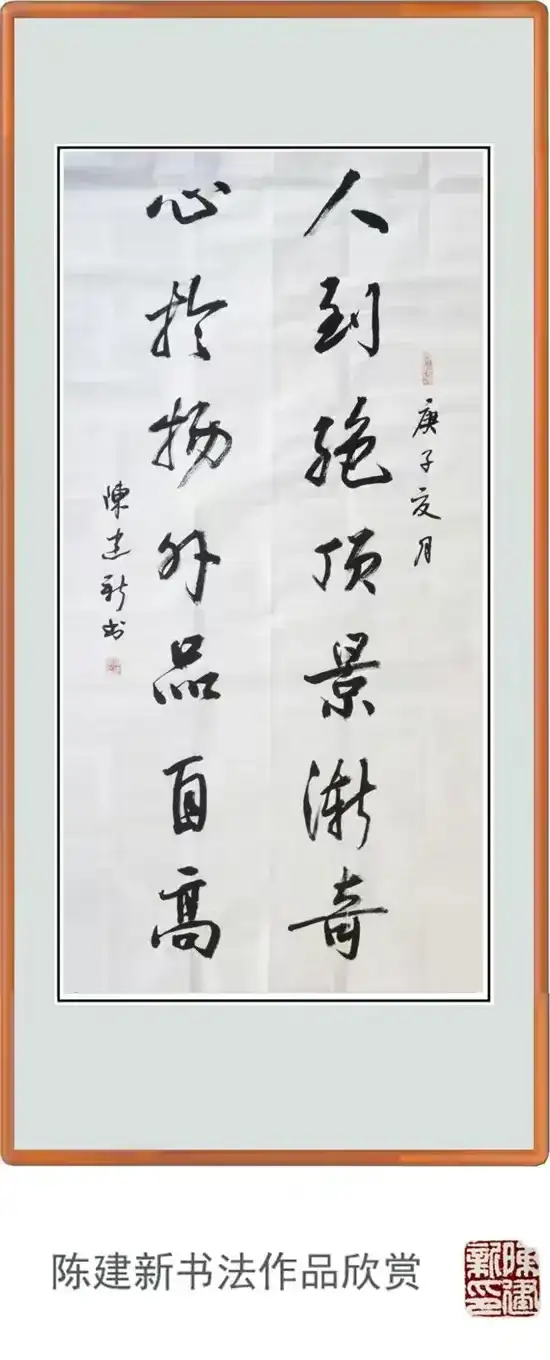 庚子夏月
人到绝顶景漸奇
心於物外品自高
陳建新书
陈建新书法作品欣赏
陳建新印